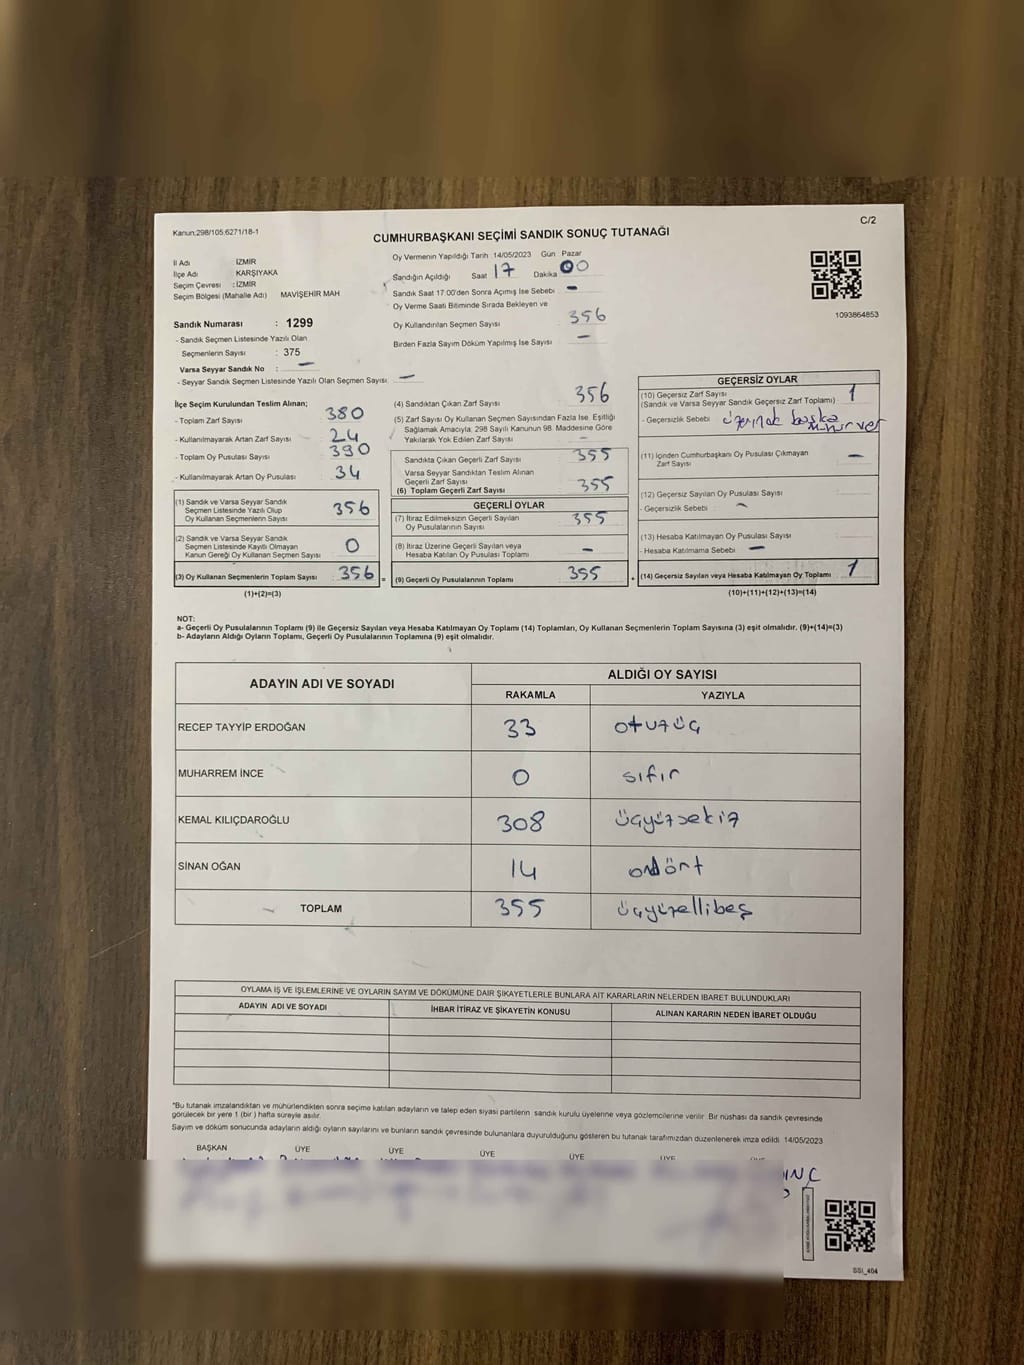 C/2
Kanun:298/105;6271/18-1
CUMHURBAŞKANI SEÇİMİ SANDIK SONUÇ TUTANAĞI
İl Adı : İZMİR
İlçe Adı : KARŞIYAKA
Seçim Çevresi : İZMİR
Seçim Bölgesi (Mahalle Adı) MAVİŞEHİR MAH
Sandık Numarası : 1299
- Sandık Seçmen Listesinde Yazılı Olan
Seçmenlerin Sayısı : 375
Varsa Seyyar Sandık No : —
- Seyyar Sandık Seçmen Listesinde Yazılı Olan Seçmen Sayısı: —
Oy Vermenin Yapıldığı Tarih 14/05/2023 Gün Pazar
Sandığın Açıldığı Saat 17 Dakika 00
Sandık Saat 17:00'den Sonra Açımış İse Sebebi —
Oy Verme Saati Bitiminde Sırada Bekleyen ve
Oy Kullandırılan Seçmen Sayısı 356
Birden Fazla Sayım Döküm Yapılmış İse Sayısı —
1093864853
İlçe Seçim Kurulundan Teslim Alınan;
- Toplam Zarf Sayısı 380
- Kullanılmayarak Artan Zarf Sayısı 24
- Toplam Oy Pusulası Sayısı 390
- Kullanılmayarak Artan Oy Pusulası 34
(1) Sandık ve Varsa Seyyar Sandık
Seçmen Listesinde Yazılı Olup
Oy Kullanan Seçmenlerin Sayısı 356
(2) Sandık ve Varsa Seyyar Sandık
Seçmen Listesinde Kayıtlı Olmayan
Kanun Gereği Oy Kullanan Seçmen Sayısı 0
(3) Oy Kullanan Seçmenlerin Toplam Sayısı 356 =
(1)+(2)=(3)
(4) Sandıktan Çıkan Zarf Sayısı 356
(5) Zarf Sayısı Oy Kullanan Seçmen Sayısından Fazla İse, Eşitliği
Sağlamak Amacıyla, 298 Sayılı Kanunun 98. Maddesine Göre
Yakılarak Yok Edilen Zarf Sayısı —
Sandıkta Çıkan Geçerli Zarf Sayısı 355
Varsa Seyyar Sandıktan Teslim Alınan
Geçerli Zarf Sayısı
(6) Toplam Geçerli Zarf Sayısı 355
GEÇERLİ OYLAR
(7) İtiraz Edilmeksizin Geçerli Sayılan
Oy Pusulalarının Sayısı 355
(8) İtiraz Üzerine Geçerli Sayılan veya
Hesaba Katılan Oy Pusulası Toplamı —
(9) Geçerli Oy Pusulalarının Toplamı 355 +
GEÇERSİZ OYLAR
(10) Geçersiz Zarf Sayısı 1
(Sandık ve Varsa Seyyar Sandık Geçersiz Zarf Toplamı)
- Geçersizlik Sebebi üzerinde başka mühür var
(11) İçinden Cumhurbaşkanı Oy Pusulası Çıkmayan
Zarf Sayısı —
(12) Geçersiz Sayılan Oy Pusulası Sayısı
- Geçersizlik Sebebi : —
(13) Hesaba Katılmayan Oy Pusulası Sayısı
- Hesaba Katılmama Sebebi —
(14) Geçersiz Sayılan veya Hesaba Katılmayan Oy Toplamı 1
(10)+(11)+(12)+(13)=(14)
NOT:
a- Geçerli Oy Pusulalarının Toplamı (9) ile Geçersiz Sayılan veya Hesaba Katılmayan Oy Toplamı (14) Toplamları, Oy Kullanan Seçmenlerin Toplam Sayısına (3) eşit olmalıdır. (9)+(14)=(3)
b- Adayların Aldığı Oyların Toplamı, Geçerli Oy Pusulalarının Toplamına (9) eşit olmalıdır.
ADAYIN ADI VE SOYADI ALDIĞI OY SAYISI
RAKAMLA YAZIYLA
RECEP TAYYİP ERDOĞAN 33 otuzüç
MUHARREM İNCE 0 sıfır
KEMAL KILIÇDAROĞLU 308 üçyüzsekiz
SİNAN OĞAN 14 ondört
TOPLAM 355 üçyüzellibeş
OYLAMA İŞ VE İŞLEMLERİNE VE OYLARIN SAYIM VE DÖKÜMÜNE DAİR ŞİKAYETLERLE BUNLARA AİT KARARLARIN NELERDEN İBARET BULUNDUKLARI
ADAYIN ADI VE SOYADI İHBAR İTİRAZ VE ŞİKAYETİN KONUSU ALINAN KARARIN NEDEN İBARET OLDUĞU
*Bu tutanak imzalandıktan ve mühürlendikten sonra seçime katılan adayların ve talep eden siyasi partilerin sandık kurulu üyelerine veya gözlemcilerine verilir. Bir nüshası da sandık çevresinde
görülecek bir yere 1 (bir ) hafta süreyle asılır.
Sayım ve döküm sonucunda adayların aldığı oyların sayılarını ve bunların sandık çevresinde bulunanlara duyurulduğunu gösteren bu tutanak tarafımızdan düzenlenerek imza edildi 14/05/2023
BAŞKAN ÜYE ÜYE ÜYE ÜYE ÜYE
SSI_464